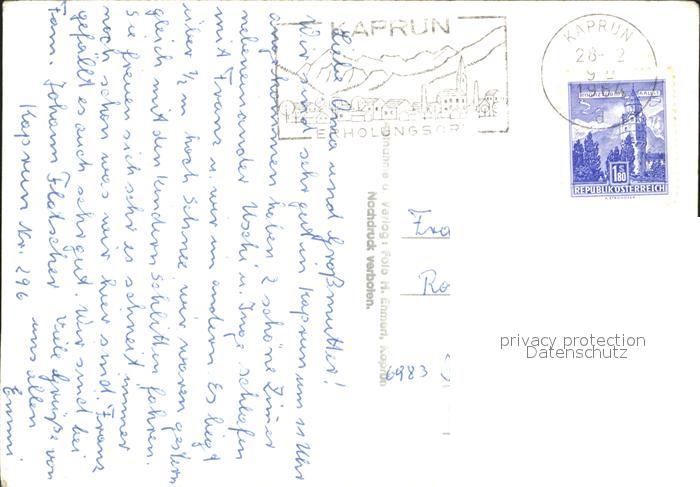 KAPRUN
ERHOLUNGSOR
KAPRUN
28-2
1964
d
1S80
REPUBLIK ÖSTERREICH
Liebe Oma und Großmutter!
Wir sind sehr gut in Kaprun um 11 Uhr
angekommen haben 2 schöne Zimmer
nebeneinander Uschi u. Inge schlafen
mit Franz u. wir im andern. Es liegt
über ½ m hoch Schnee wir waren gestern
gleich mit den Kindern Schlitten fahren.
Sie freuen sich sehr es schneit immer
noch schon was wir hier sind. Franz
gefällt es auch sehr gut. Wir sind bei
Fam. Johann Flatscher
Kaprun Nr. 296
Viele Grüße von
uns allen
Emmi
Aufnahme u. Verlag: Foto H. Emmert, Kaprun
Nachdruck verboten.
Fra
Ro
6983
privacy protection
Datenschutz